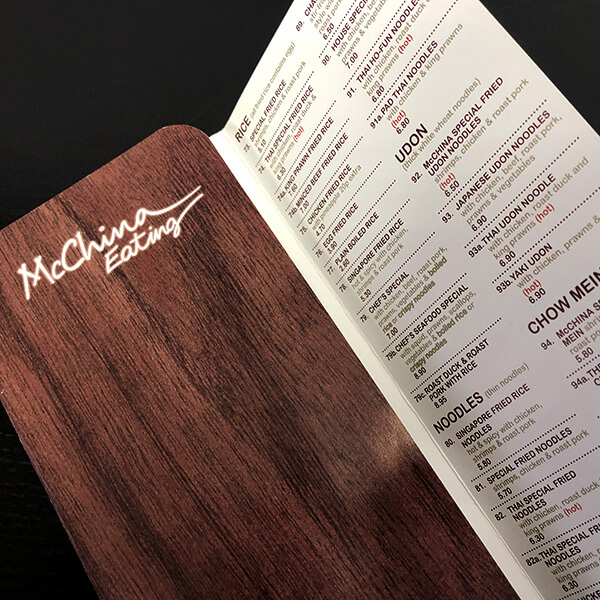 McChina
Eating
RICE
(all fried rice contains egg)
73. SPECIAL FRIED RICE
shrimps, chicken & roast pork
5.10
74. THAI SPECIAL FRIED RICE
king prawns (hot)
74a. KING PRAWN FRIED RICE
74b. MIXED BEEF FRIED RICE
75. CHICKEN FRIED RICE
4.70
76. EGG FRIED RICE
77. PLAIN BOILED RICE
2.60
78. SINGAPORE FRIED RICE
shrimps & roast pork
5.30
79. CHEF'S SPECIAL
with chicken, beef, roast pork,
prawns, vegetables & boiled
rice or crispy noodles
7.00
79b. CHEF'S SEAFOOD SPECIAL
with squid, prawns, scallops,
vegetables & boiled rice or
crispy noodles
8.90
79c. ROAST DUCK & ROAST
PORK WITH RICE
8.95
NOODLES (thin noodles)
80. SINGAPORE FRIED RICE
hot & spicy with chicken,
shrimps & roast pork
5.80
81. SPECIAL FRIED NOODLES
shrimps, chicken & roast pork
5.70
82. THAI SPECIAL FRIED
NOODLES
with chicken, roast duck
king prawns (hot)
6.30
82a. THAI SPECIAL FRIED
NOODLES
with chicken,
king prawns
6.30
89.
6.50
90. HOUSE SPECIAL
with chicken,
prawns & vegetables
7.00
91. THAI HO-FUN NOODLES
with chicken, roast duck &
king prawns (hot)
6.80
91b PAD THAI NOODLES
with chicken & king prawns
(hot)
6.80
UDON
(thick white wheat noodles)
92. McCHINA SPECIAL FRIED
UDON NOODLES
shrimps, chicken & roast pork
(hot)
6.50
93. JAPANESE UDON NOODLES
with chicken, beef, roast pork,
prawns & vegetables
6.90
93a. THAI UDON NOODLE
with chicken, roast duck and
king prawns (hot)
6.90
93b. YAKI UDON
with chicken, prawns &
(hot)
6.90
CHOW MEIN
94. McCHINA
MEIN
5.80
94a.